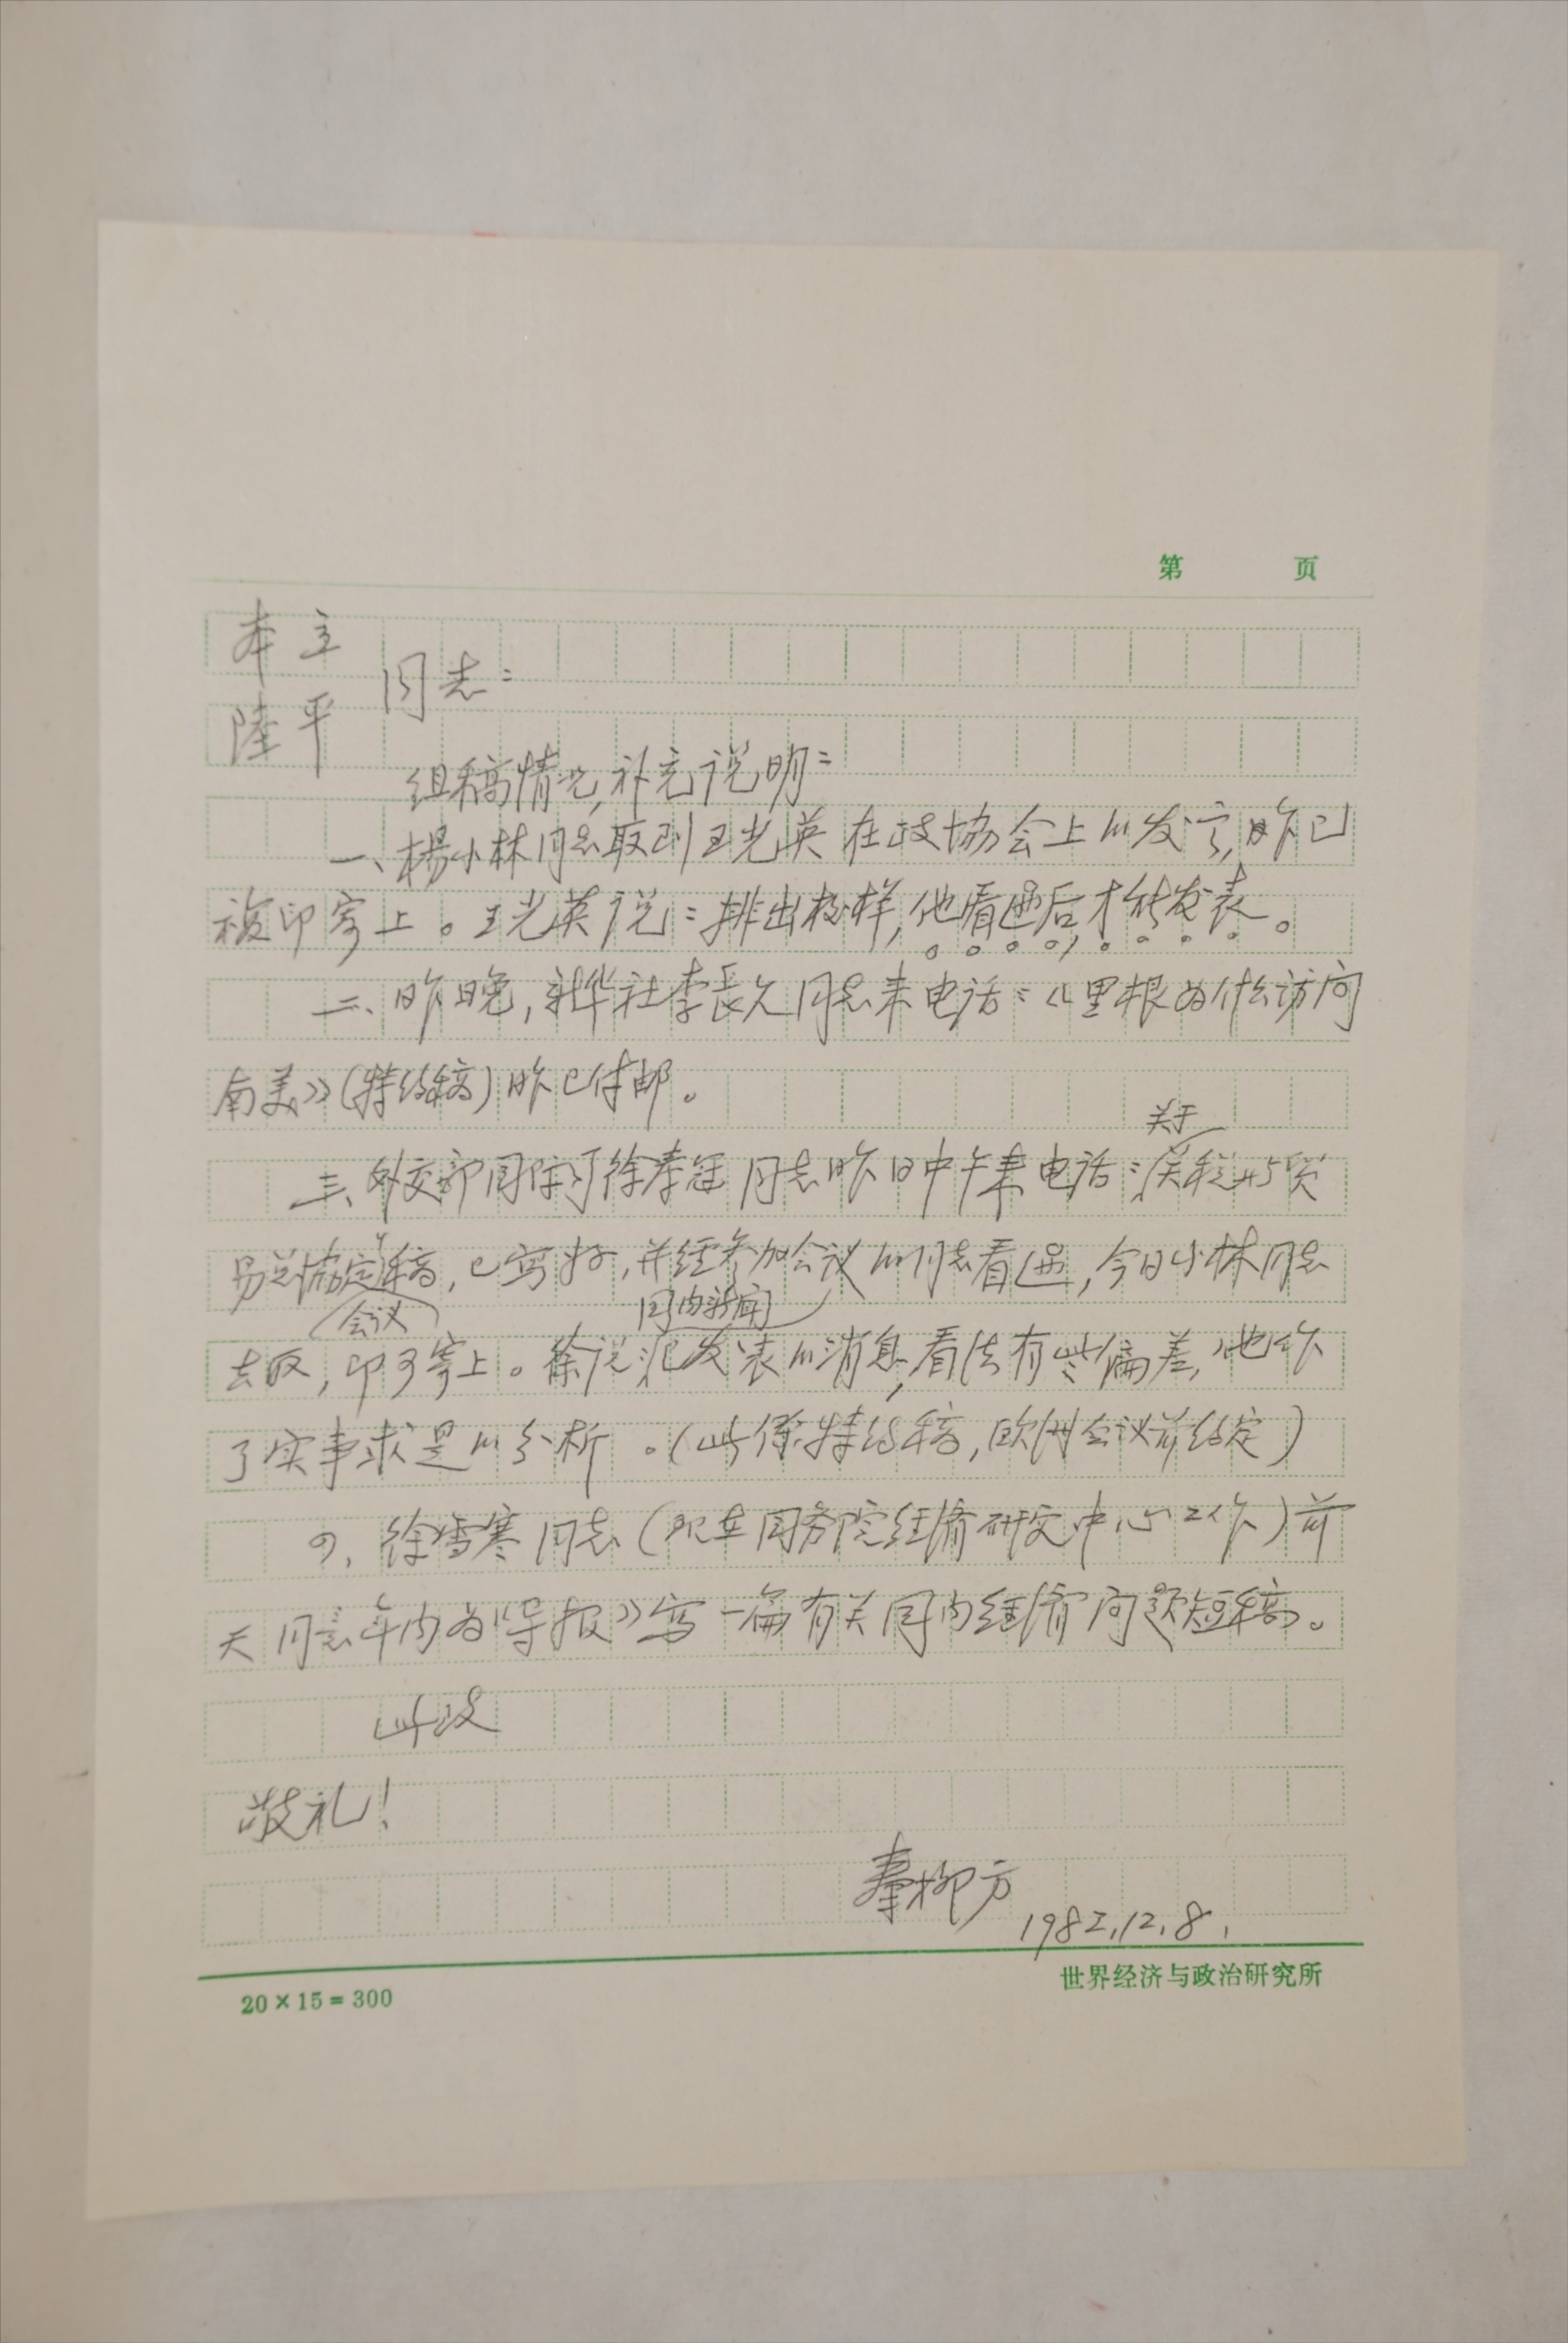 第 页
本立
陆平 同志：
组稿情况,补充说明：
一、杨小林同志取到王光英在政协会上的发言,昨已
复印寄上。王光英说：排出校样,他看过后,才能发表。
二、昨日晚,新华社李长久同志来电话：《里根为什么访问
南美》(特约稿)昨已付邮。
关于
三、外交部国际司徐秦冠同志昨日中午来电话：关税与贸
易总协定稿,已写好,并经参加会议的同志看过,今日小林同志
会议 国内新闻
去取,即可寄上。徐说况发表的消息,看法有些偏差,他作
了实事求是的分析。(此系特约稿,欧洲会议前约定)
四、徐雪寒同志(现在国务院经济研究中心工作)前
天同意年内为《导报》写一篇有关国内经济问题短稿。
此致
敬礼!
秦柳方
1982.12.8.
20×15=300
世界经济与政治研究所